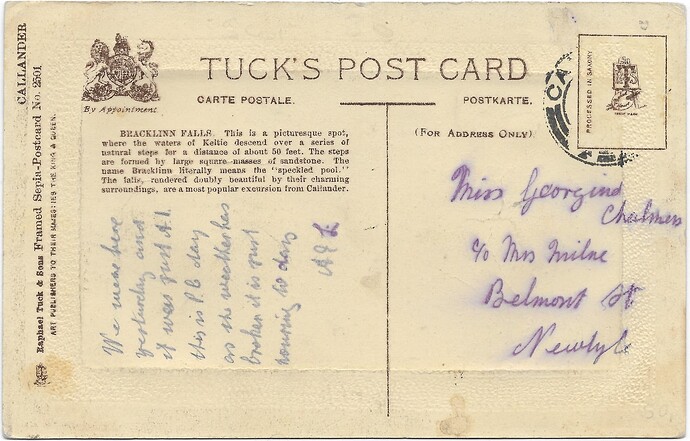 CALLANDER
Raphael Tuck & Sons Framed Sepia-Postcard No. 2501
ART PUBLISHERS TO THEIR MAJESTIES THE KING & QUEEN.
By Appointment
TUCK'S POST CARD
CARTE POSTALE.
POSTKARTE.
(For Address Only)
PROCESSED IN SAXONY
CA
BRACKLINN FALLS. This is a picturesque spot,
where the waters of Keltie descend over a series of
natural steps for a distance of about 50 feet. The steps
are formed by large square masses of sandstone. The
name Bracklinn literally means the "speckled pool."
The falls, rendered doubly beautiful by their charming
surroundings, are a most popular excursion from Callander.
We wear here
yesterday and
it was just A.1.
this is P.C day
as the weather has
broken it is just
pouring to day
Miss Georgina
Chalmers
c/o Mrs Milne
Belmont St
Newtyle